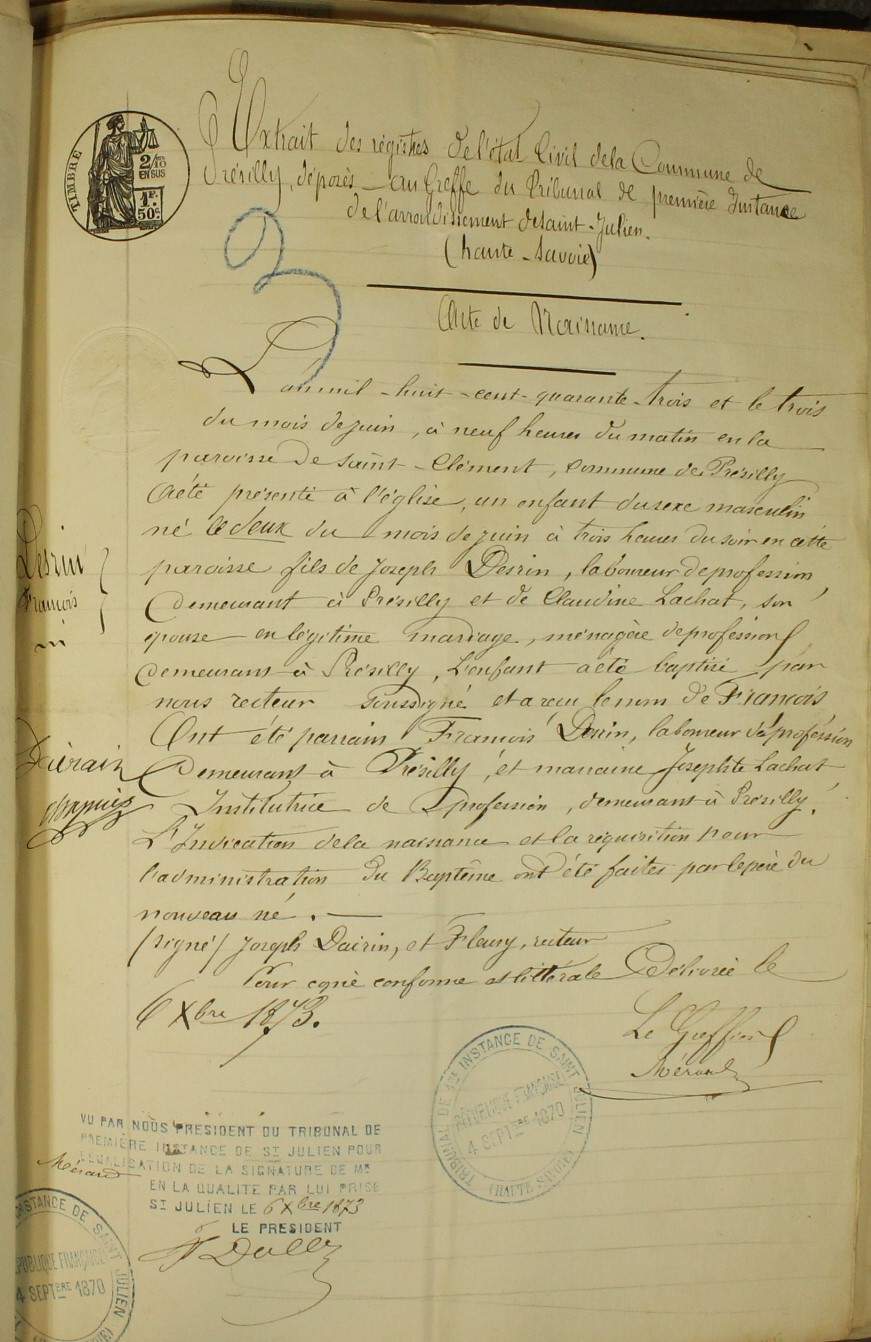 TIMBRE
2/10
EN SUS
1F.
50c.
Extrait des régistres de l'état Civil de la Commune de
Présilly, déposés au Greffe du Tribunal de première Instance
de l'arrondissement de Saint-Julien.
(haute-Savoie)
3
Acte de Naissance.
L'an mil-huit-cent-quarante-trois et le trois
du mois de juin, à neuf heures du matin en la
paroisse de Saint-Clément, commune de Présilly
a été présenté à l'église, un enfant du sexe masculin
né le deux du mois de juin à trois heures du soir en cette
paroisse fils de Joseph Desrin, laboureur de profession,
Demeurant à Présilly et de Claudine Lachat, son
épouse en légitime mariage, ménagère de profession
demeurant à Présilly, L'enfant a été baptisé par
nous recteur soussigné et a reçu le nom de François
Desrin
François
Ont été parrain François Desrin, laboureur de profession
Demeurant à Présilly, et marraine Josephte Lachat
Institutrice de profession, demeurant à Présilly.
L'Indication de la naissance et la réquisition pour
l'administration du Baptême ont été faites par le père du
nouveau né.
(signé) Joseph Dairin, et Fleury, recteur
Pour copie conforme et littérale Délivrée le
6 Xbre 1873.
Le Greffier
Mérand
TRIBUNAL DE 1RE INSTANCE DE SAINT JULIEN (HAUTE SAVOIE)
RÉPUBLIQUE FRANÇAISE
4 SEPTBRE 1870
VU PAR NOUS PRESIDENT DU TRIBUNAL DE
PREMIÈRE INSTANCE DE ST JULIEN POUR
LÉGALISATION DE LA SIGNATURE DE Me
Mérand
EN LA QUALITE PAR LUI PRISE
ST JULIEN LE 6 Xbre 1873
LE PRESIDENT
INSTANCE DE SAINT JULIEN
RÉPUBLIQUE FRANÇAISE
4 SEPTBRE 1870